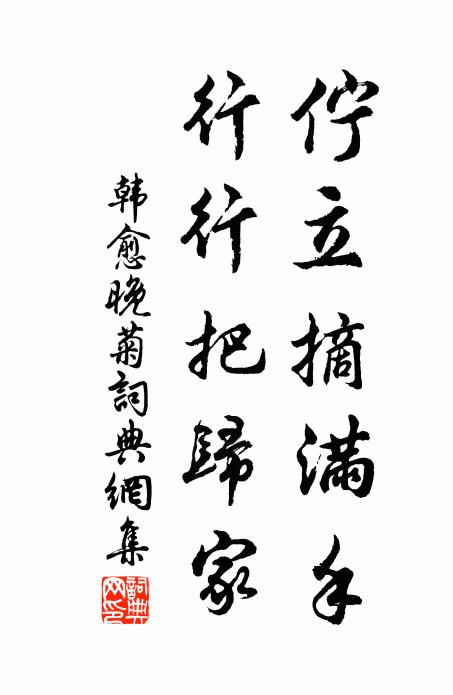 佇立摘滿手
行行把歸家
韓愈晚菊詞典網集
詞典网印